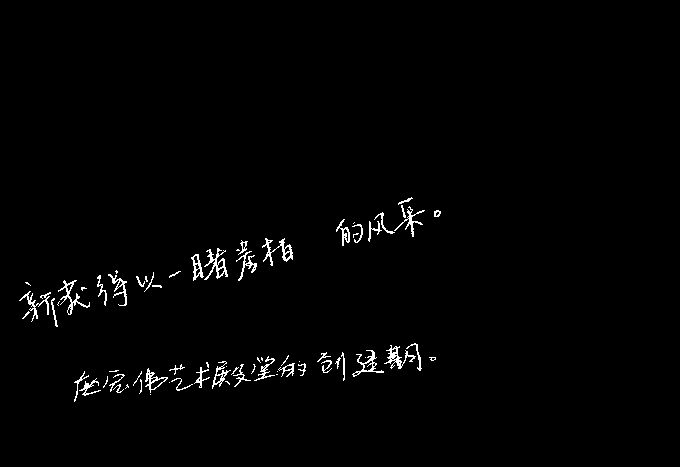 新获得以一睹岩柏 的风采。
座宏伟艺术殿堂的创建期。